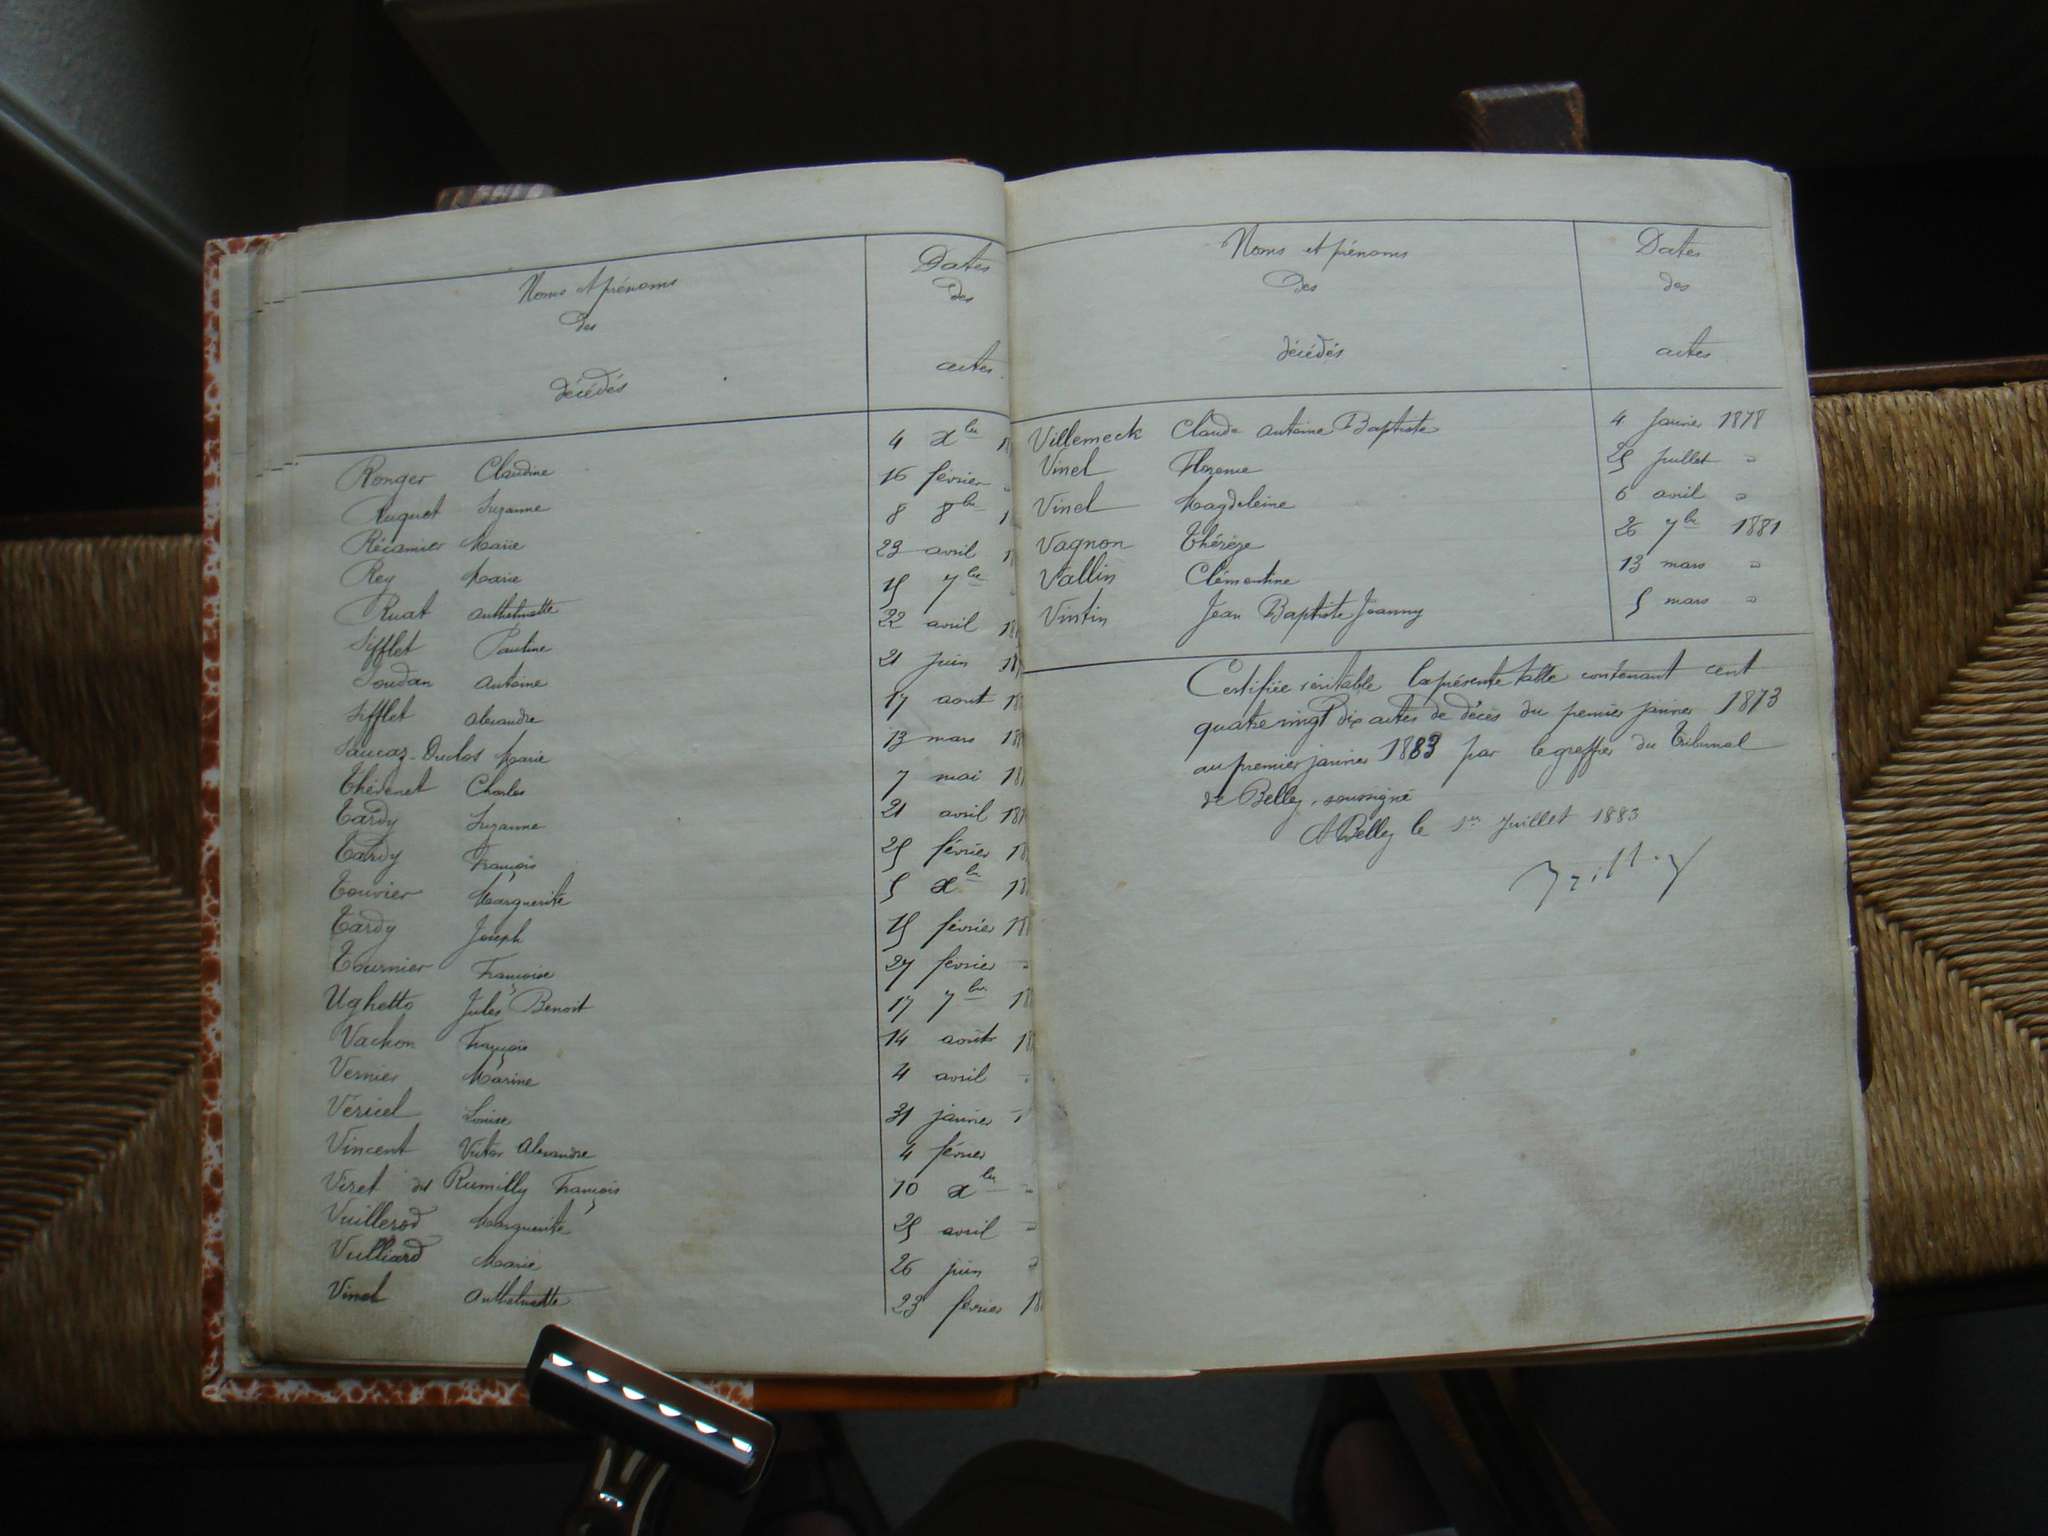 Noms et prénoms
des
décédés
Dates
des
actes
Ronger Claudine 4 Xbre 18
Ruguet Suzanne 16 février "
Récamier Marie 8 8bre 1
Rey Marie 23 avril 1
Ruat Anthelmette 15 7bre
Sifflet Pauline 22 avril 18
Soudan Antoine 21 juin 18
Sifflet Alexandre 17 aout 18
Marie 13 mars 18
Thévenet Charles 7 mai 18
Tardy Suzanne 21 avril 18
Tardy François 25 février 18
Touvier Marguerite 5 Xbre 18
Tardy Joseph 15 février 18
Tournier Françoise 27 février "
Ughetto Jules Benoit 17 7bre 18
Vachon François 14 août 18
Vernier Marine 4 avril "
Véricel Louise 31 janvier "
Vincent Victor Alexandre 4 février
Viret de Rumilly François 10 Xbre "
Vuillerod Marguerite 25 avril "
Vulliard Marie 26 juin "
Vinel Anthelmette 23 février 18
Noms et prénoms
des
décédés
Dates
des
actes
Villemeck Claude Antoine Baptiste 4 janvier 1878
Vinel Florence 25 juillet "
Vinel Magdeleine 6 avril "
Vagnon Thérèze 26 7bre 1881
Vallin Clémentine 13 mars "
Vintin Jean Baptiste Joanny 5 mars "
Certifiée véritable la présente table contenant cent
quatre vingt dix actes de décès du premier janvier 1873
au premier janvier 1883 par le greffier du Tribunal
de Belley, soussigné
A Belley le 1er Juillet 1883